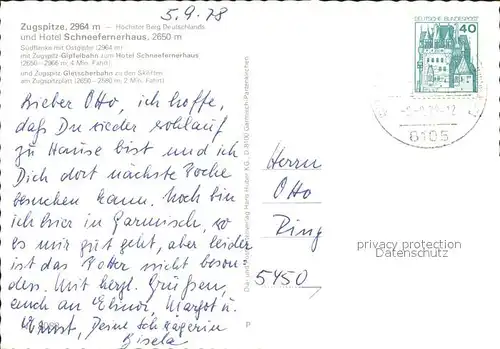 5.9.78
Zugspitze, 2964 m — Höchster Berg Deutschlands
und Hotel Schneefernerhaus, 2650 m
Südflanke mit Ostgipfel (2964 m)
mit Zugspitz-Gipfelbahn zum Hotel Schneefernerhaus
(2650–2966 m, 4 Min. Fahrt)
und Zugspitz-Gletscherbahn zu den Skiliften
am Zugspitzplatt (2650–2580 m, 2 Min. Fahrt)
DEUTSCHE BUNDESPOST
40
8105
Lieber Otto, ich hoffe,
daß Du wieder wohlauf
zu Hause bist und ich
Dich dort nächste Woche
besuchen kann. Noch bin
ich hier in Garmisch, wo
es mir gut geht, aber leider
ist das Wetter nicht beson-
ders. Mit herzl. Grüßen,
auch an Elinor, Margot u.
Ernst, Deine Schwägerin
Gisela
Hans Huber KG, D 8100 Garmisch-Partenkirchen
P
Herrn
Otto
Ring
5450
privacy protection
Datenschutz